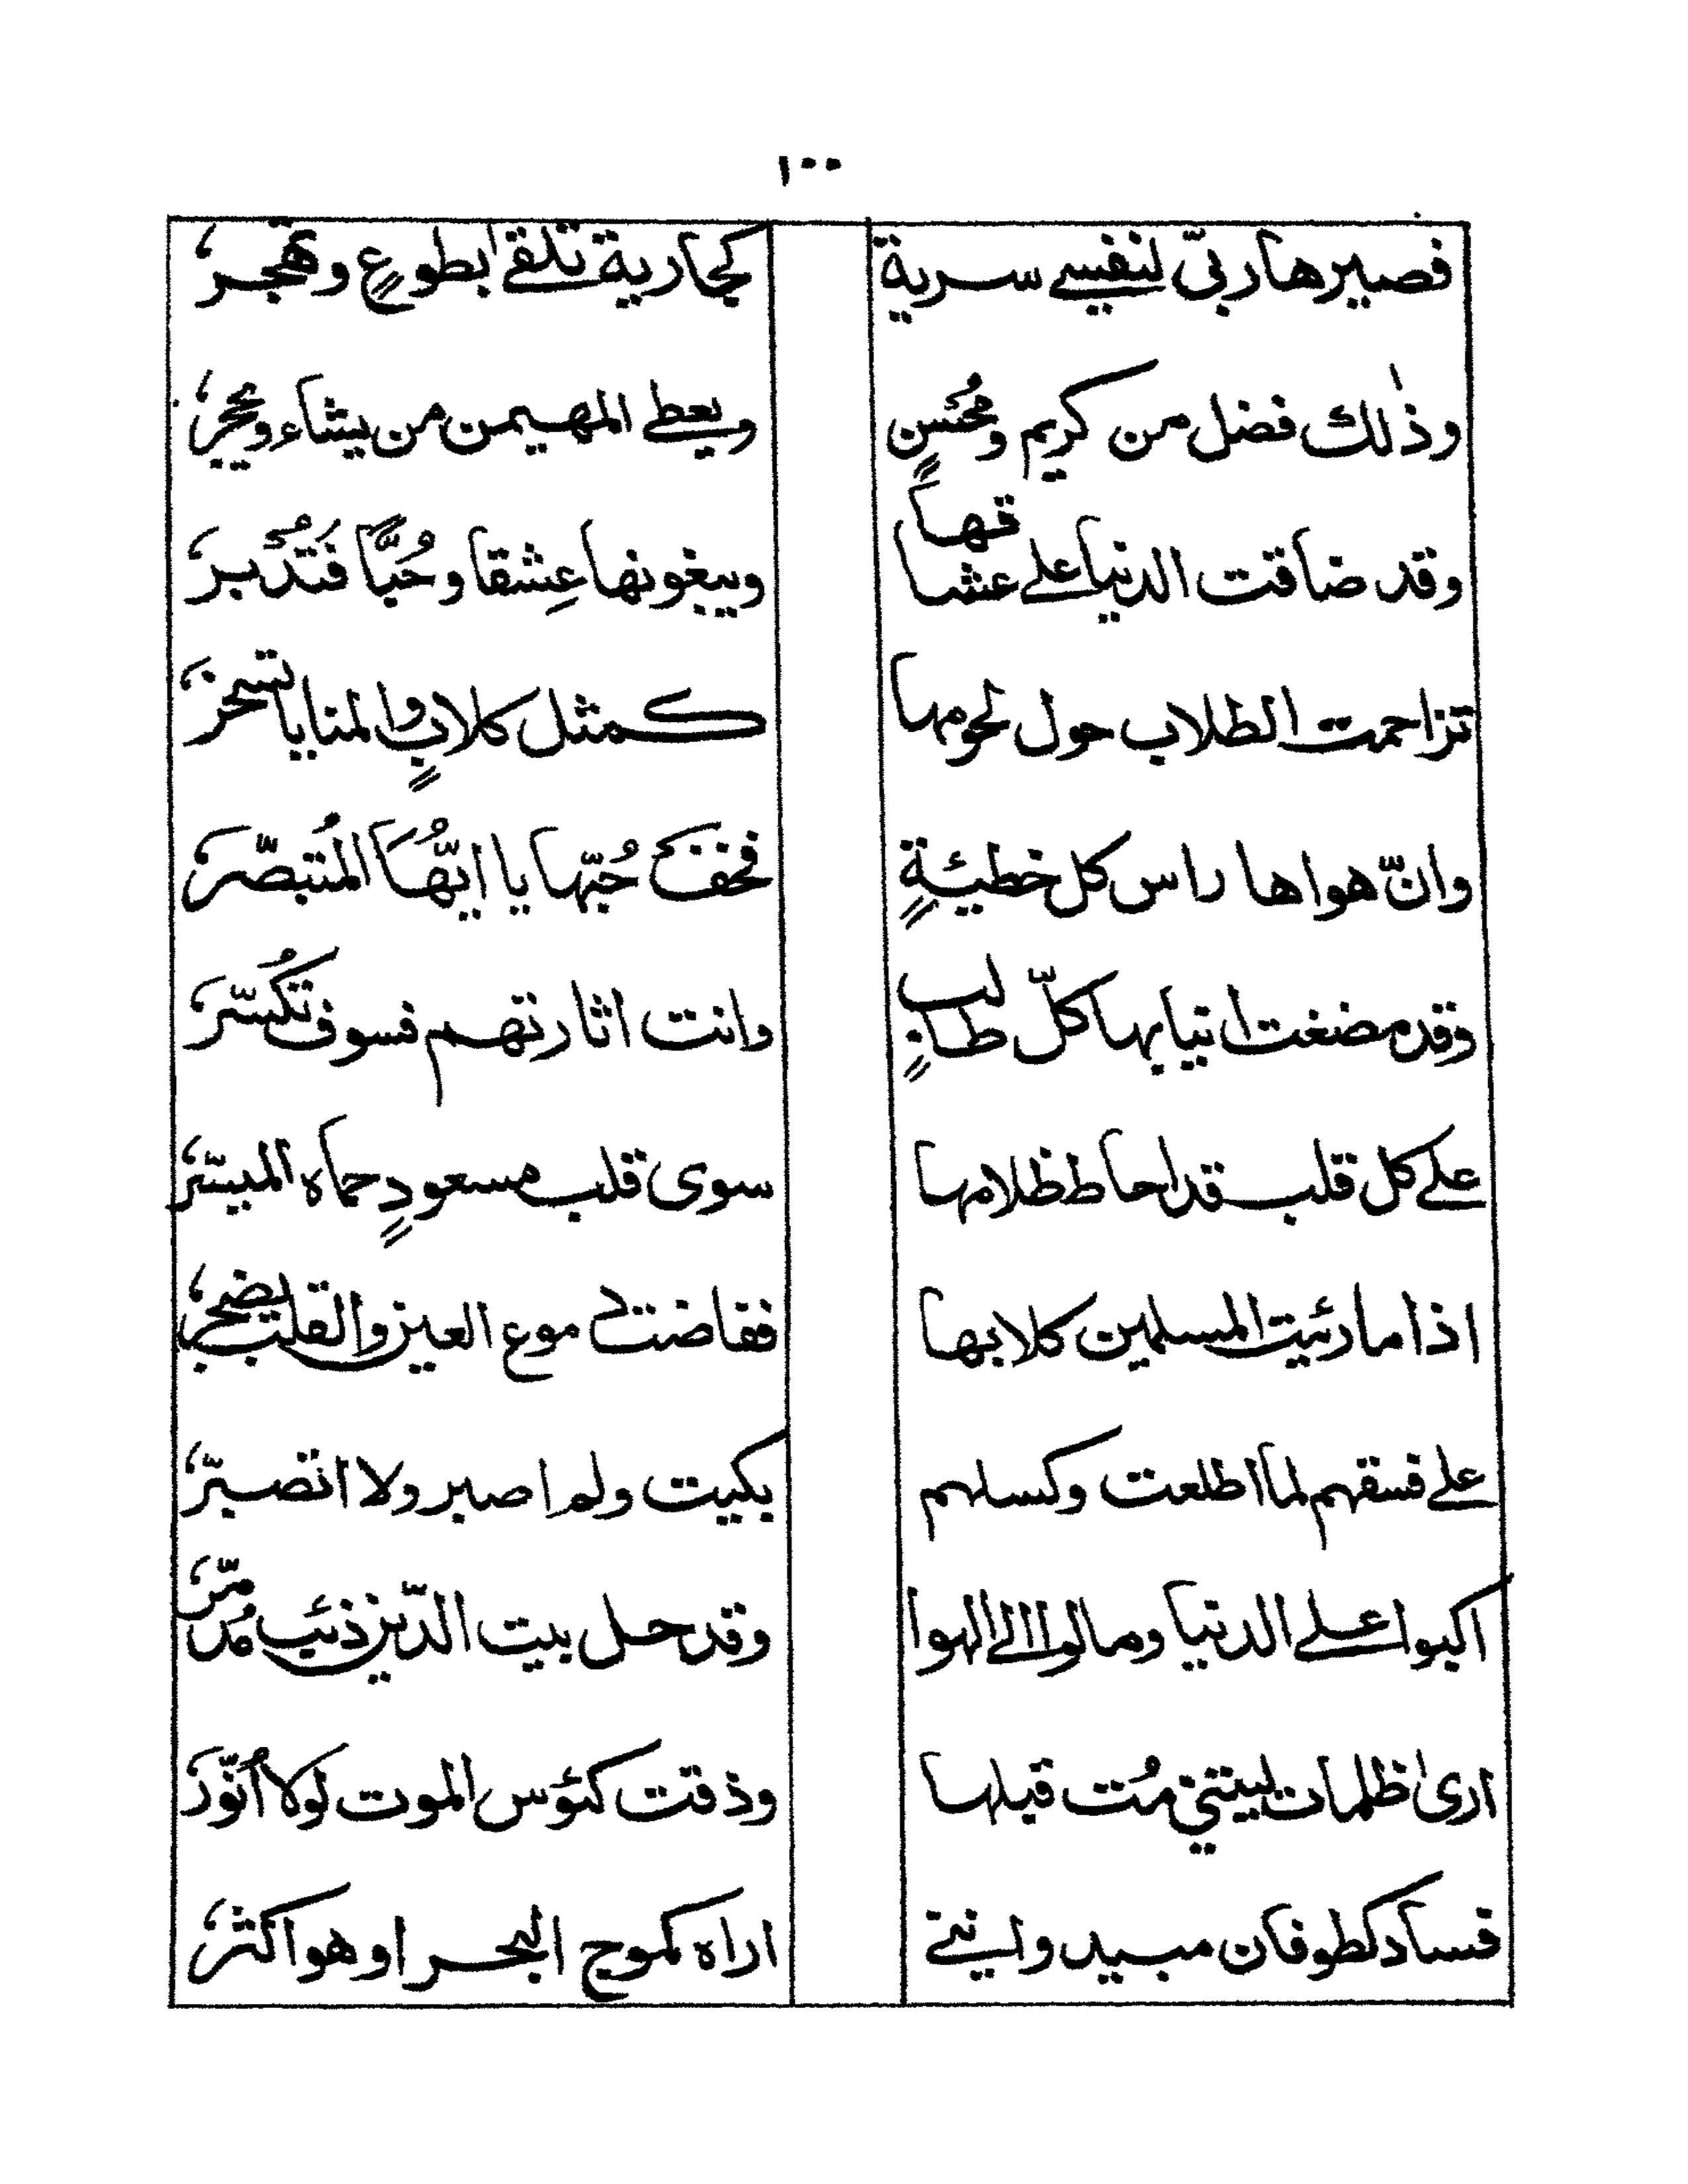 ١٠٠
فصيرها ربّى لنفسے سرية كجارية تلقے بطوعٍ وتهجر
وذٰلك فضل من كريم ومُحْسنٍ ويعطے المهيمن من يشاء ويحجر
وقد ضاقت الدنيا علے عشاقها ويبغونها عِشقا وحُبًّا فَتُدْبر
تزاحمت الطلاب حول لحومها كمثل كلابٍ والمنايا تسخر
وانّ هواها راس كل خطيئةٍ فخف حُبّها يا ايّها المُتبصّر
وقد مضغت انيابها كلّ طالبٍ وانت اثارتهم فسوف تُكسّر
علے كل قلب قد احاط ظلامها سوى قلب مسعودٍ حماه الميسّر
اذا ما رئيت المسلمين كلابها ففاضت دموع العين والقلب يضجر
علے فسقهم لما اطلعت وكسلهم بكيت ولم اصبر ولا اتصبّر
اكبوا علے الدنيا ومالوا الے الهوا وقد حل بيت الدّين ذئب مُدمّر
ارىٰ ظلمات ليتنے مُت قبلها وذقت كئوس الموت لولا اُنوّر
فساد كطوفان مبيد واننے اراه كموج البحر او هو اكثر